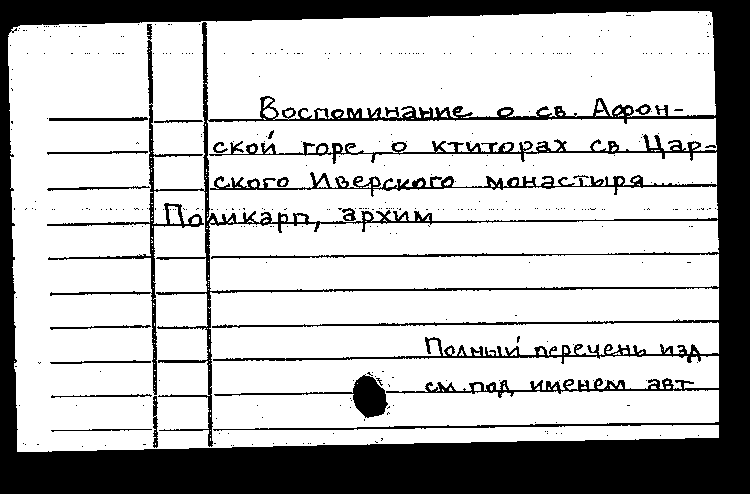 Воспоминание о св. Афон-
ской горе, о ктиторах св. Цар-
ского Иверского монастыря...
Поликарп, архим
Полный перечень изд
см. под именем авт